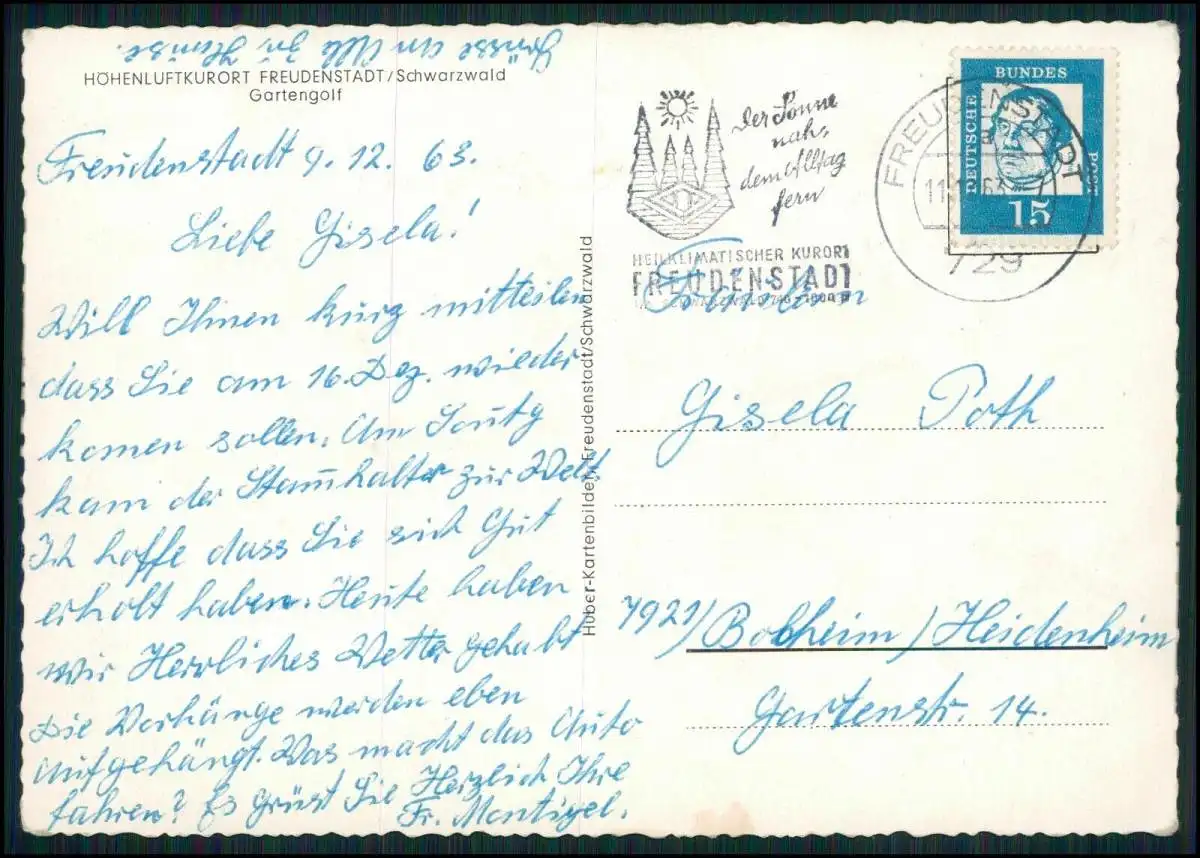 Grüsse an Alle zu Hause.
HÖHENLUFTKURORT FREUDENSTADT/Schwarzwald
Gartengolf
Freudenstadt 9. 12. 63.
Liebe Gisela!
Will Ihnen kurz mitteilen
dass Sie am 16. Dez. wieder
komen sollen. Am Sontg
kam der Stam̄halter zur Welt
Ich hoffe dass Sie sich Gut
erholt haben. Heute haben
wir Herrliches Wetter gehabt
Die Vorhänge werden eben
Aufgehängt. Was macht das Auto
fahren? Es Grüst Sie Herzlich Ihre
Fr. Montigel.
Huber-Kartenbilder, Freudenstadt/Schwarzwald
Der Sonne
nah,
dem Alltag
fern
HEILKLIMATISCHER KURORT
FREUDENSTADT
FREUDENSTADT
729
DEUTSCHE
BUNDES
POST
15
Fräulein
Gisela Poth
7921/Bolheim/Heidenheim
Gartenstr. 14.